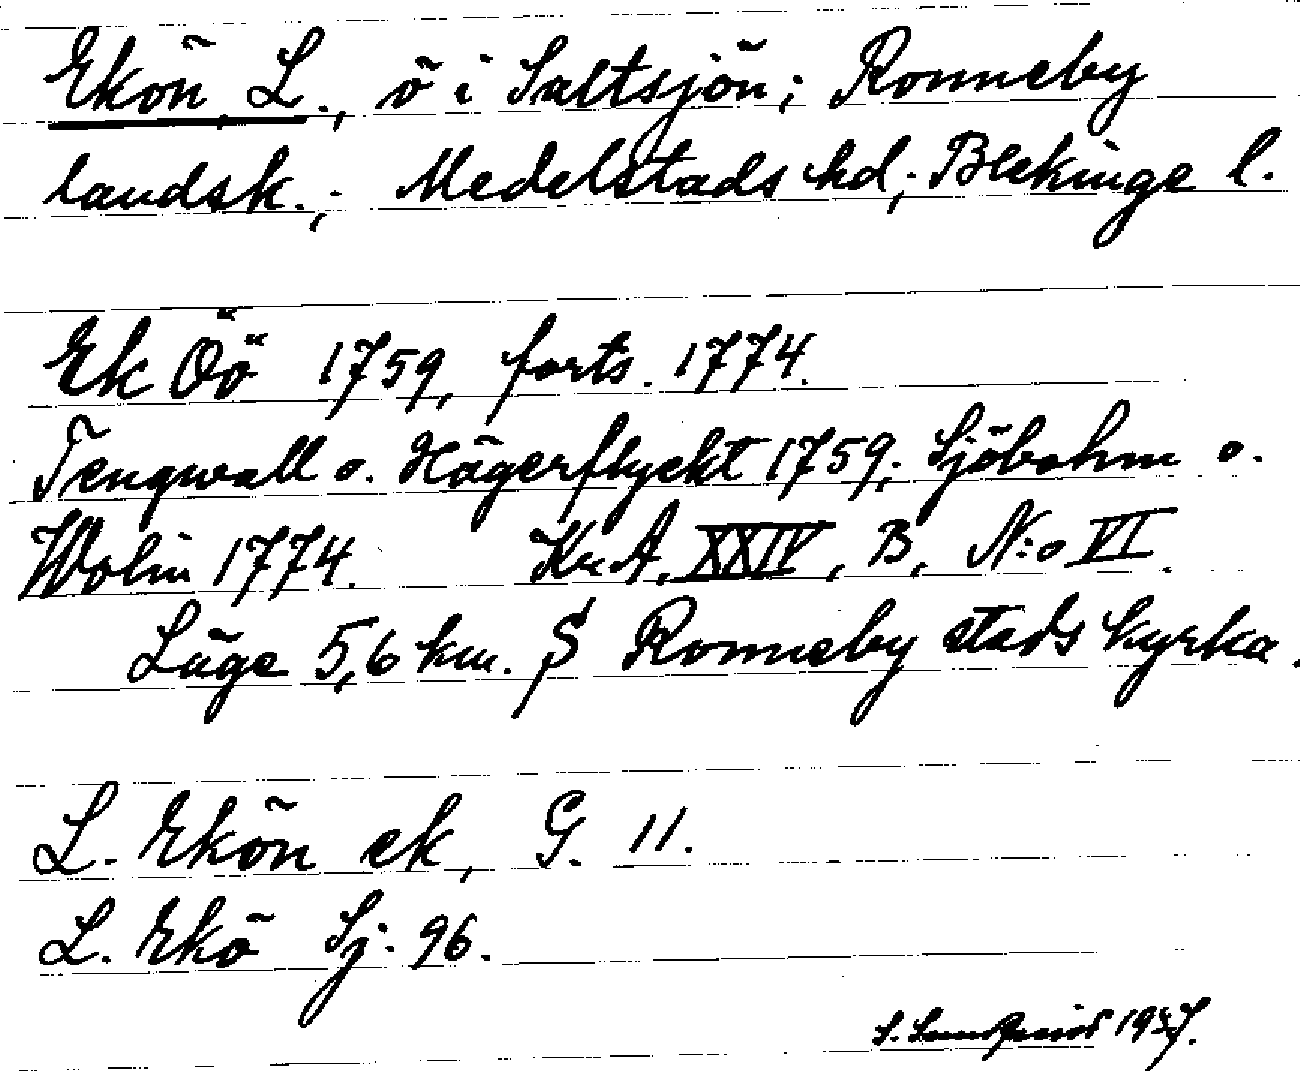 Ekön, L., ö i Saltsjön; Ronneby
landsk.; Medelstads hd; Blekinge l.
Ek Öö 1759, forts. 1774.
Tengwall o. Hägerflyckt 1759; Sjöbohm o.
Wolin 1774. Kr.A. XXIV, B, N:o VI.
Läge 5,6 km. S Ronneby stads kyrka.
L. Ekön ek, G. 11.
L. Ekö Sj. 96.
S. Lundqvist